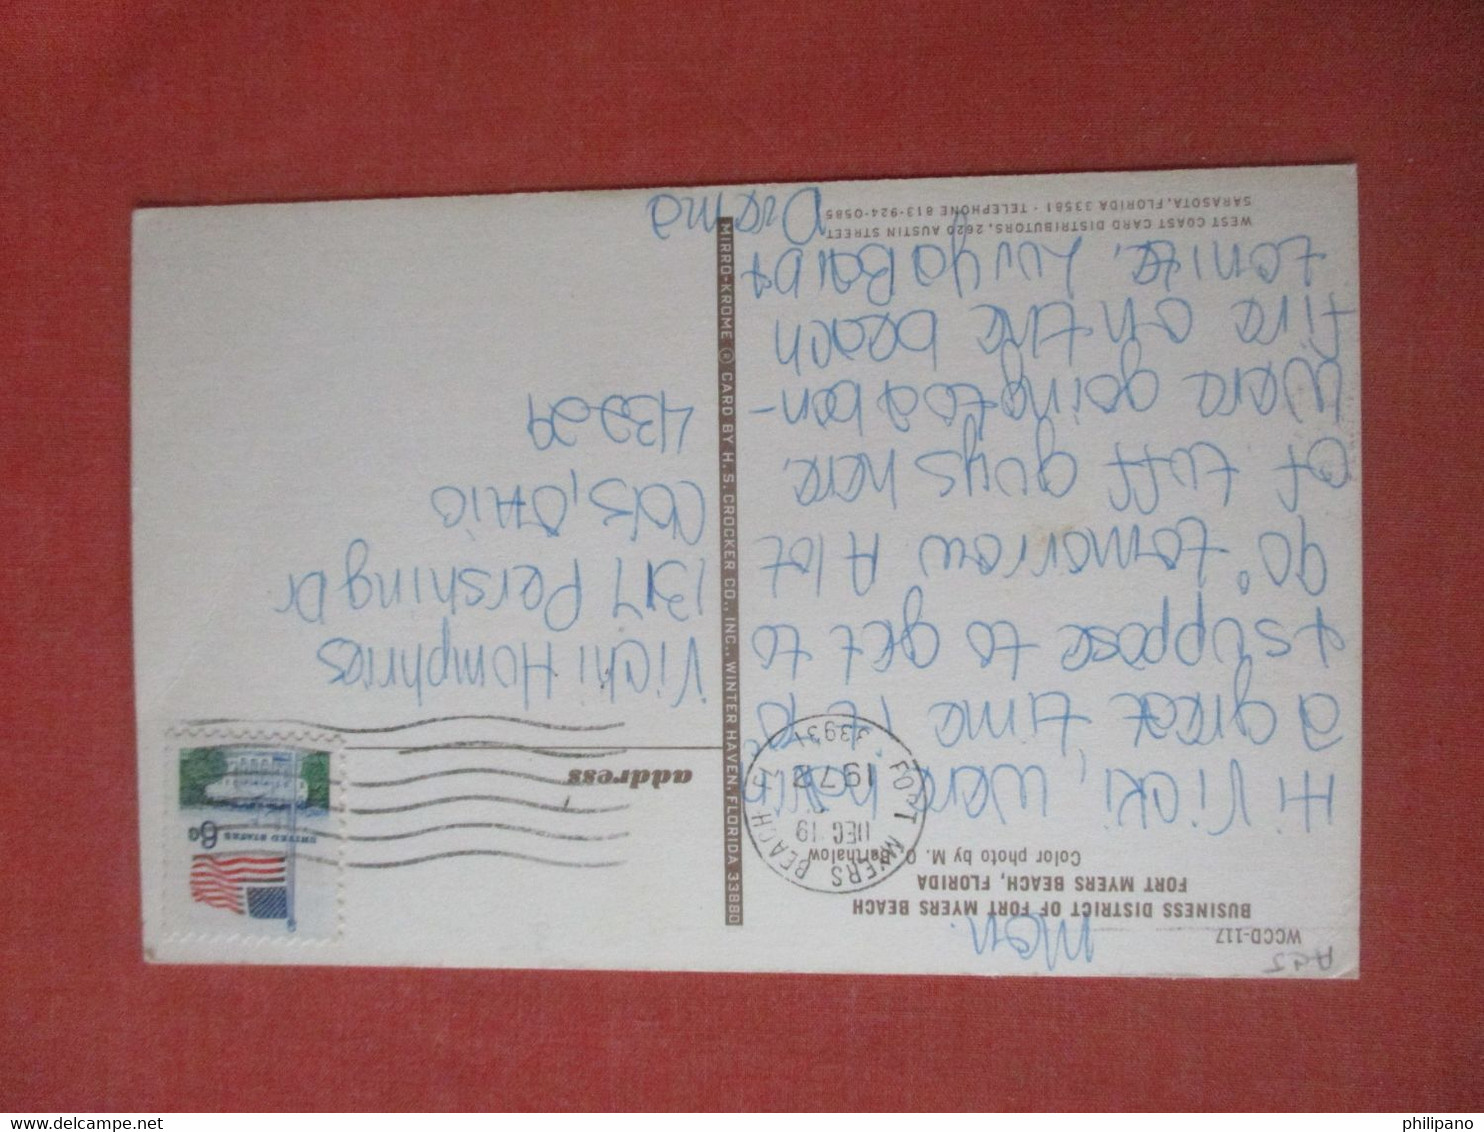 A25
WCCD-117
BUSINESS DISTRICT OF FORT MYERS BEACH
FORT MYERS BEACH, FLORIDA
Color photo by M. O. Barthalow
Mon.
Hi Vicki, were havin
a great time, its
+ suppose to get to
90° tomorrow A lot
of tuff guys here.
Were going to a bon-
fire on the beach
tonite. Luv ya
WEST COAST CARD DISTRIBUTORS, 2620 AUSTIN STREET
SARASOTA, FLORIDA 33581 · TELEPHONE 813-924-0585
MIRRO-KROME ® CARD BY H. S. CROCKER CO., INC., WINTER HAVEN, FLORIDA 33880
FORT MYERS BEACH FL
DEC 19
1972
33931
UNITED STATES
6c
address
Vicki Humphries
1317 Pershing Dr
Cols, Ohio
43229
philipano